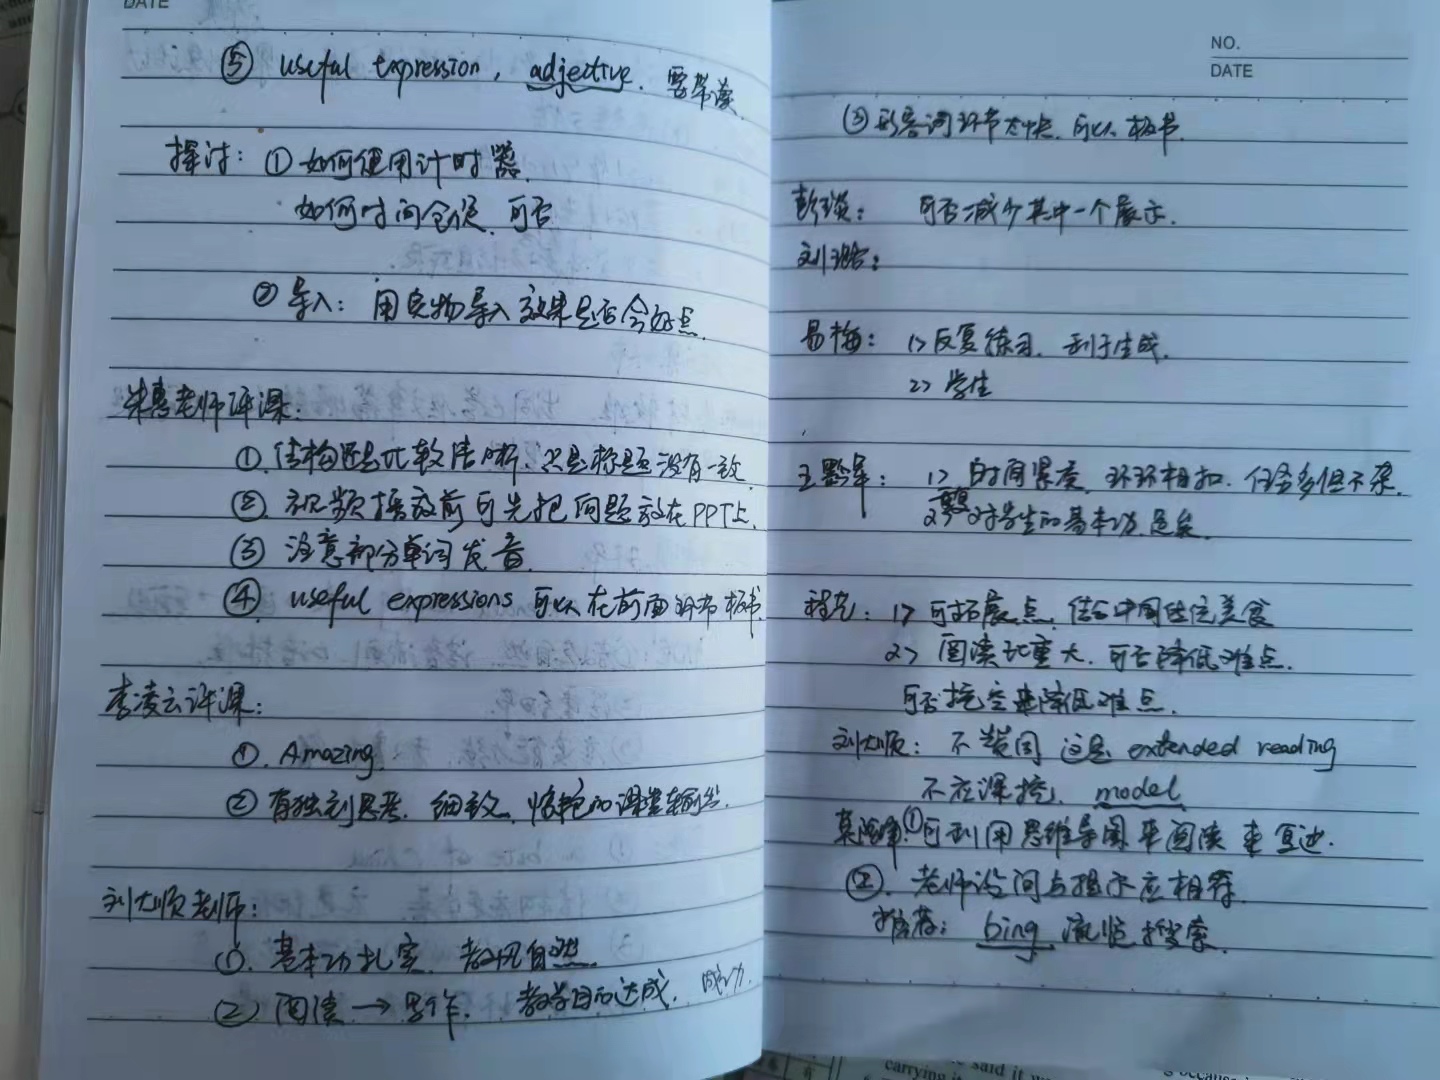 DATE
⑤ useful expression, adjective. 要带读
探讨: ① 如何使用计时器.
如何时间仓促, 可否
② 导入: 用实物导入效果是否会好点.
朱惠老师评课:
①. 结构还是比较清晰, 只是标题没有一致.
② 视频播放前可先把问题放在PPT上.
③ 注意部分单词发音.
④ useful expressions 可以在前面环节板书.
李凌云评课:
①. Amazing.
② 有独到思考, 细致, 课堂输出.
刘大顺老师:
①. 基本功扎实, 教风自然.
② 阅读 → 写作, 教学目的达成. 成功.
NO.
DATE
③ 形容词环节太快, 可以板书.
彭瑛: 可否减少其中一个展示.
刘:
易梅: 1> 反复练习, 利于生成.
2> 学生
王: 1> 时间紧凑, 环环相扣, 任务多但不杂.
2> 对学生的基本功是
程: 1> 可拓展点, 结合中国传统美食
2> 阅读比重大, 可否降低难点.
可否挖空来降低难点.
刘大顺: 不赞同 这是 extended reading
不应深挖. model
① 可利用思维导图来阅读来复述.
②. 老师设问与提示应相符.
推荐: bing 浏览搜索.
said it
carrying